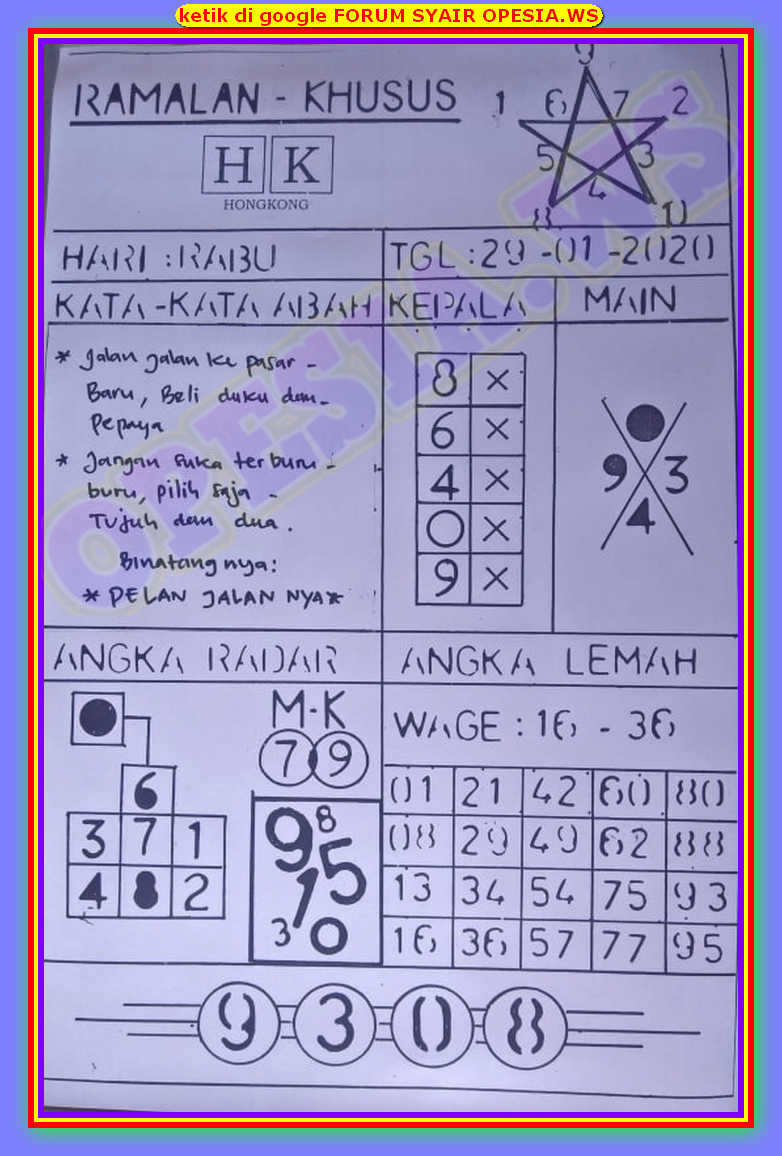 ketik di google FORUM SYAIR OPESIA.WS
RAMALAN - KHUSUS
HK
HONGKONG
9
1 6 7 2
5 3
4
8 0
HARI : RABU
TGL : 29 - 01 - 2020
KATA - KATA ABAH
KEPALA
MAIN
* Jalan jalan ke pasar -
Baru, Beli duku dan -
Pepaya
* Jangan suka terburu -
buru, pilih saja -
Tujuh dan dua.
Binatang nya:
* PELAN JALAN NYA *
8 ×
6 ×
4 ×
0 ×
9 ×
9 3
4
OPESIA.WS
ANGKA RADAR
6
3 7 1
4 8 2
M-K
7 9
9 8
5
1
3 0
ANGKA LEMAH
WAGE : 16 - 36
01 21 42 60 80
08 29 49 62 88
13 34 54 75 93
16 36 57 77 95
9 3 0 8